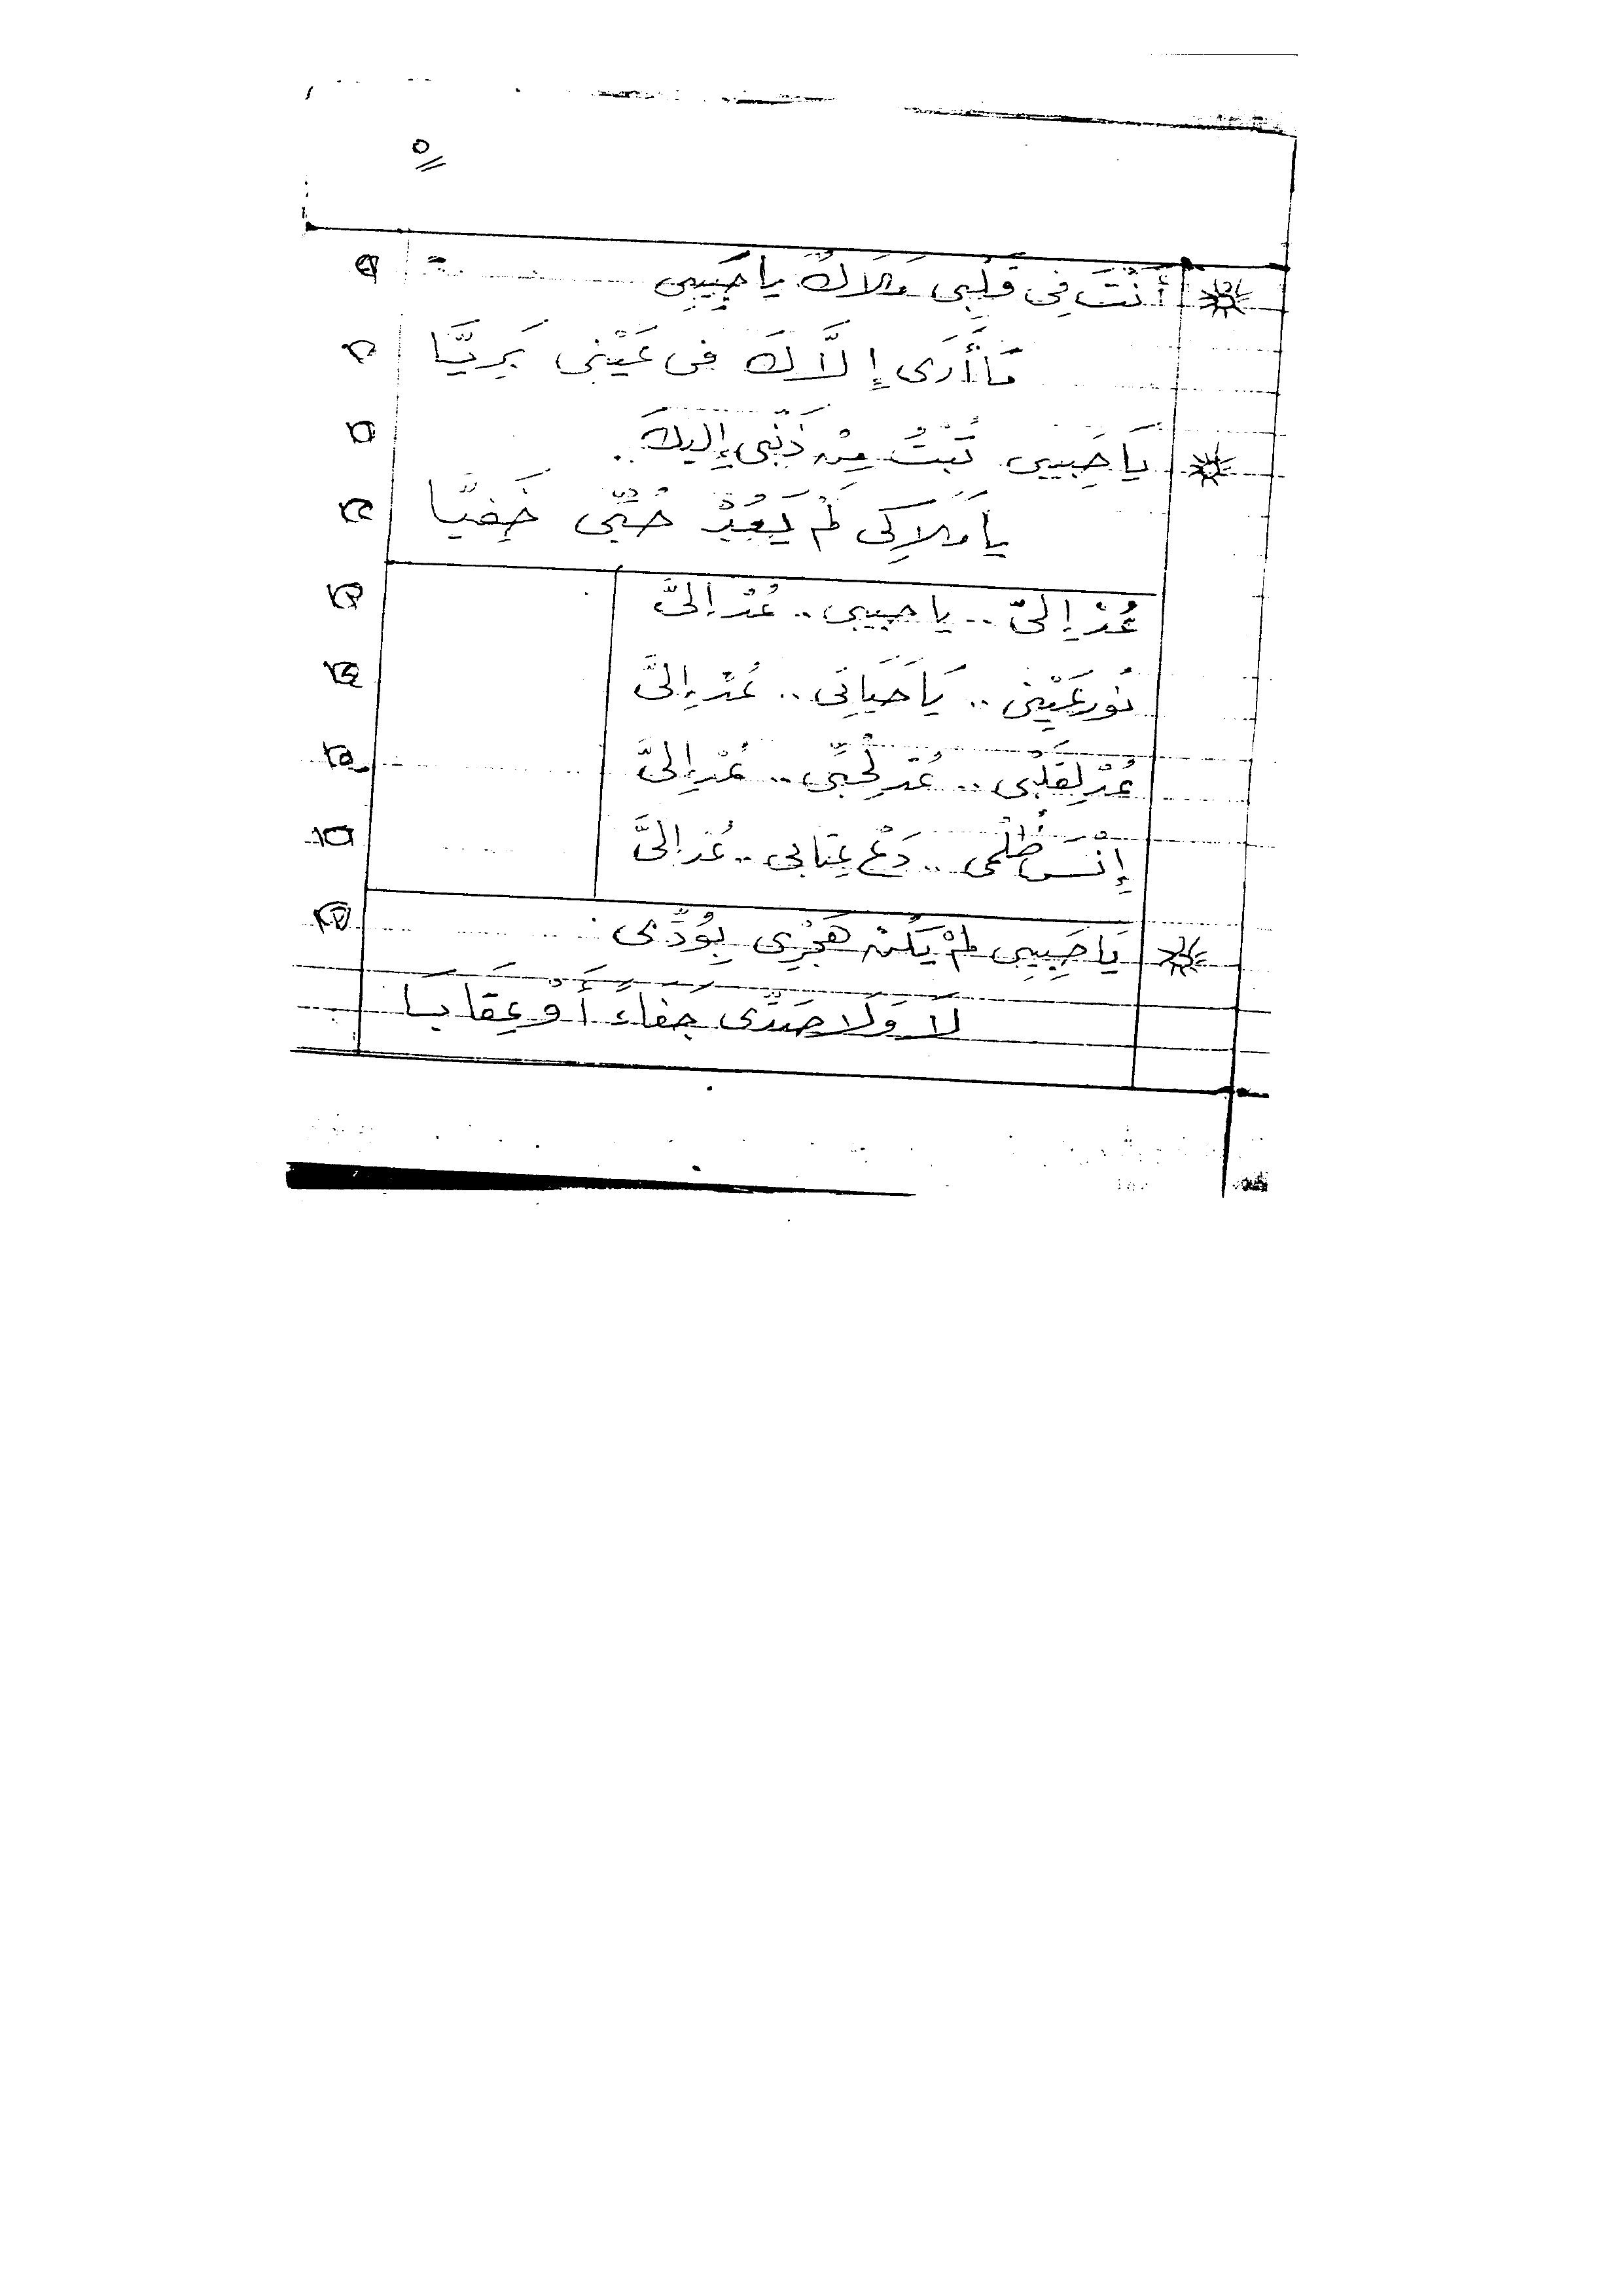 ٥
أَنْتَ فِى قَلْبِى مَلَاكٌ يا حَبِيبِى
مَا أَرَى إِلَّاكَ فى عَيْنِى بَرِيَّا
يَا حَبِيبى تُبْتُ مِنْ ذَنْبِى إِليكَ ..
يا مَلاكِى لَمْ يَعُدْ حُبِّى خَفِيَّا
عُدْ إِلىَّ .. يا حبيبى .. عُدْ إلىَّ
نُور عَيْنِى .. يَا حَيَاتِى .. عُدْ إِلىَّ
عُدْ لِقَلْبِى .. عُدْ لِحُبِّى .. عُدْ إِلىَّ
إِنْسَ ظُلْمِى .. دَعْ عِتَابى .. عُدْ إلىَّ
يَا حَبِيبِى لَمْ يَكُنْ هَجْرِى بِوُدِّى
لَا وَلَا صَدِّى جَفَاءً أَوْ عِقَابَا